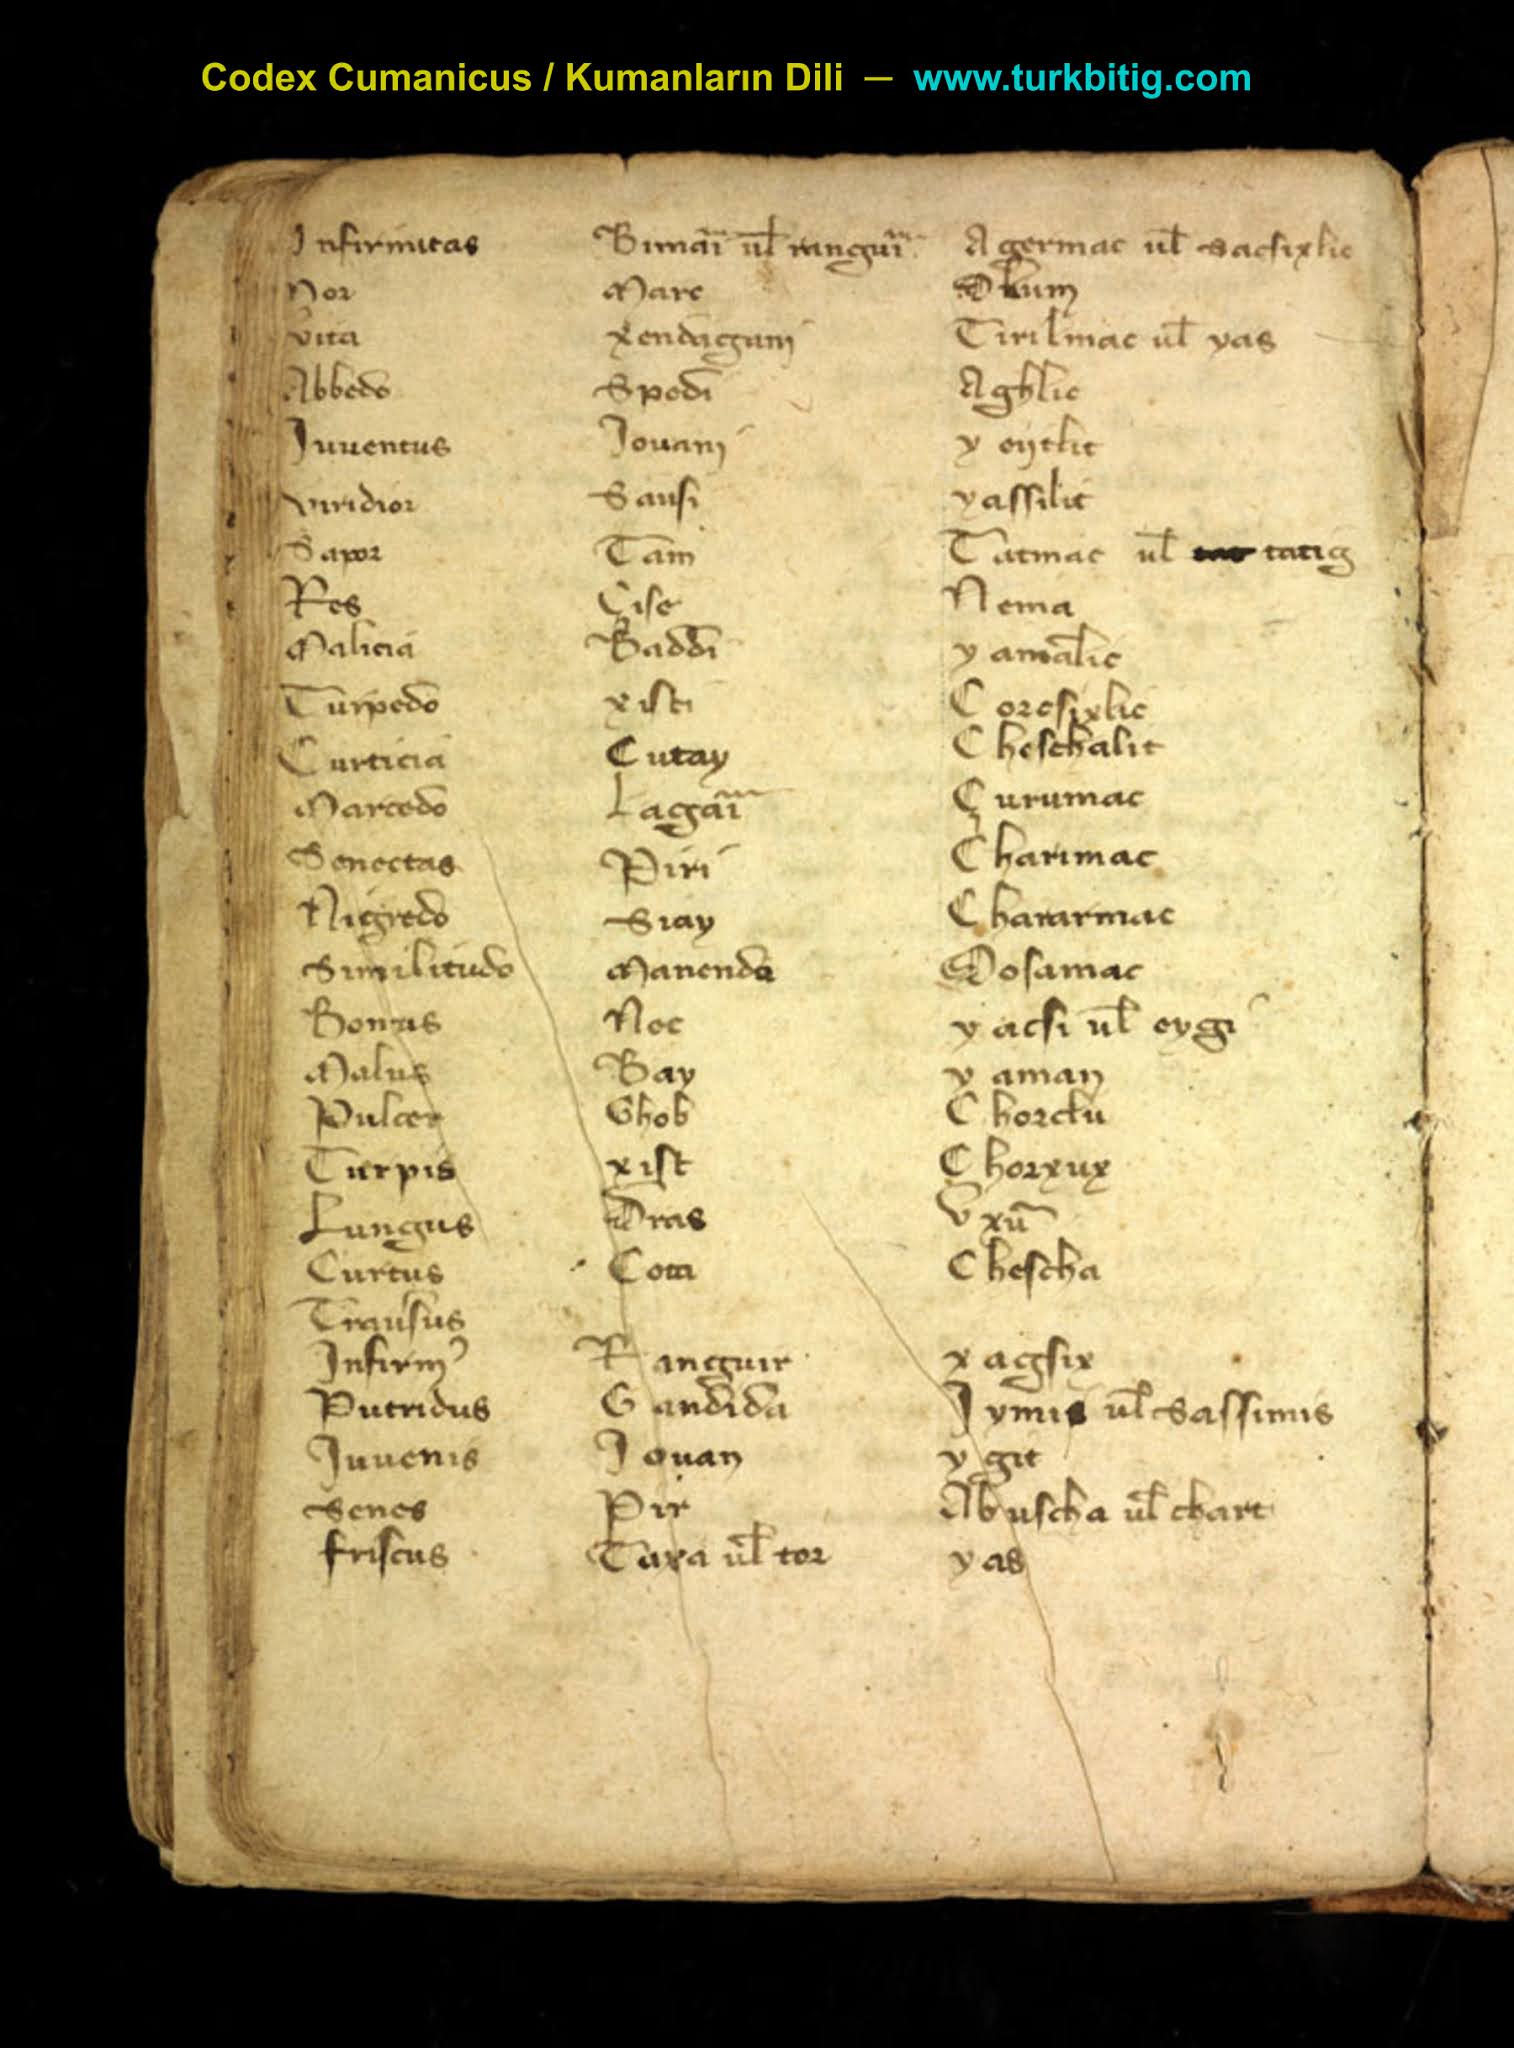 Codex Cumanicus / Kumanların Dili — www.turkbitig.com
Infirmitas Bimāī ul̄ ranguī Agermac ul̄ sacsixlic
Mor Marc Olum
Vita xendagani Tirilmac ul̄ yas
Abbedo Spedi Aghlic
Iuuentus Iouani y eijtlic
Viridior Sausi yassilic
Sapor Tam Tatmac ul̄ tatig
Res Çise Nema
Malicia Baddi y amālic
Turpedo xisti Coresixlic
Curticia Cutay Cheschalic
Marcedo Lagāī Çurumac
Senectas Piri Charimac
Nigredo Siay Chararmac
Similitudo Manenda Oosamac
Bonus Nec y acsi ul̄ eygi
Malus Bay y aman
Pulcer Ghob Chorclu
Turpis xist Chorxux
Lungus Dras Vxū
Curtus Cota Chescha
Trausus
Infirm' Ranguir x agsix
Putridus Gandida Iymis ul̄ sassimis
Iuuenis Iouan y git
Senes Pir Abuscha ul̄ chart
friscus Taxa ul̄ tor y as